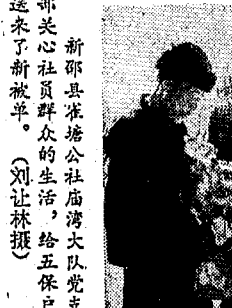 新邵县雀塘公社庙湾大队党支
部关心社员群众的生活，给五保户
送来了新被单。
（刘让林摄）